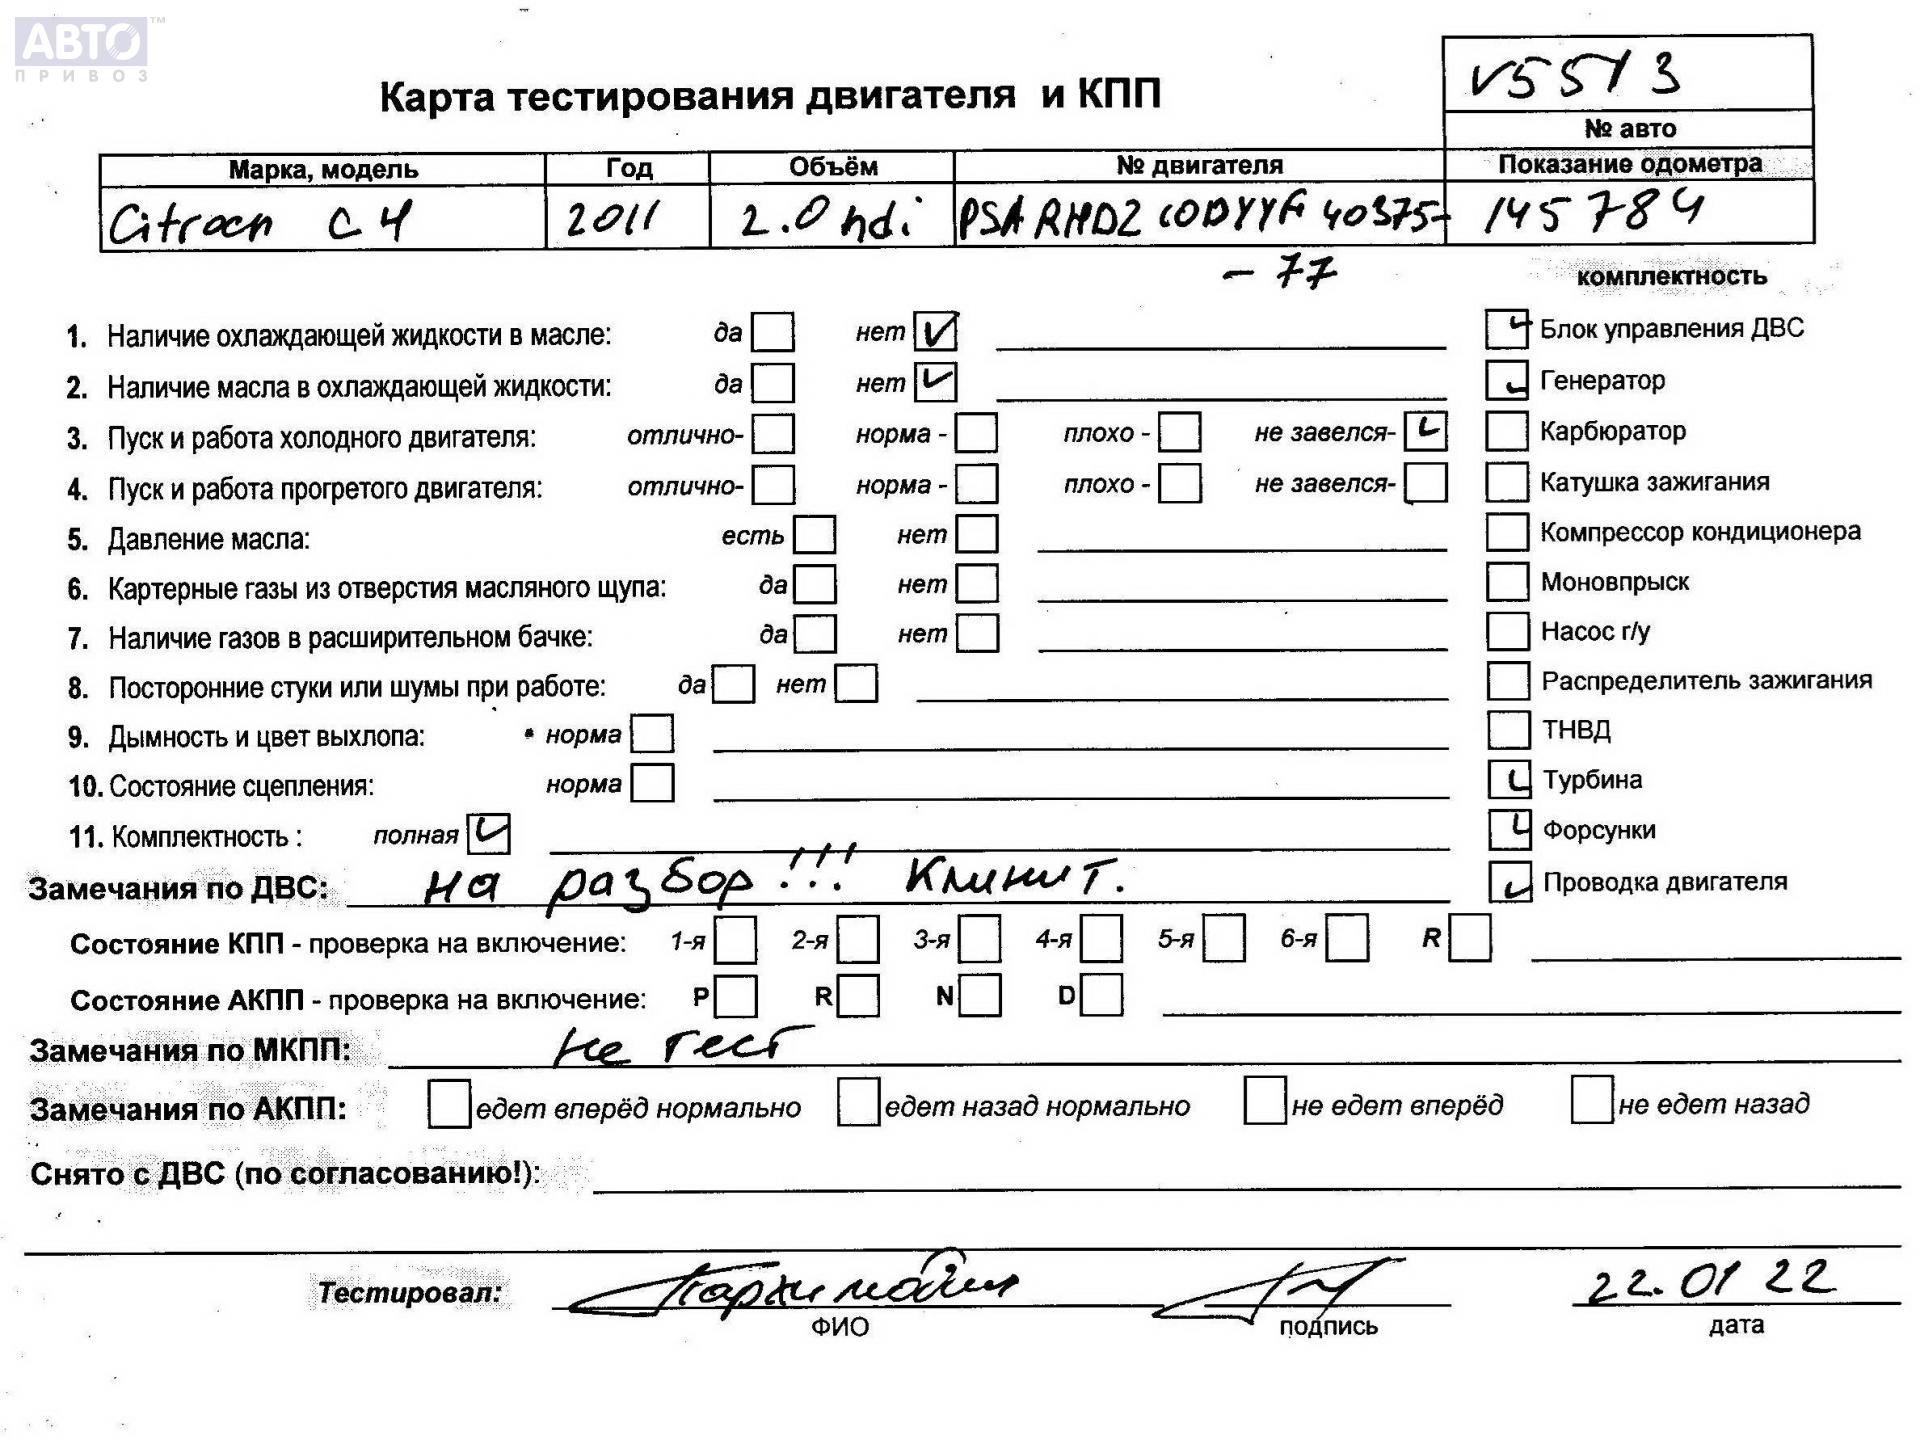 АВТО™
ПРИВОЗ
V5513
Карта тестирования двигателя и КПП
№ авто
Марка, модель Год Объём № двигателя Показание одометра
Citroen C4 2011 2.0 hdi 145784
- 77
комплектность
1. Наличие охлаждающей жидкости в масле: да нет Блок управления ДВС
2. Наличие масла в охлаждающей жидкости: да нет Генератор
3. Пуск и работа холодного двигателя: отлично- норма - плохо - не завелся- Карбюратор
4. Пуск и работа прогретого двигателя: отлично- норма - плохо - не завелся- Катушка зажигания
5. Давление масла: есть нет Компрессор кондиционера
6. Картерные газы из отверстия масляного щупа: да нет Моновпрыск
7. Наличие газов в расширительном бачке: да нет Насос г/у
8. Посторонние стуки или шумы при работе: да нет Распределитель зажигания
9. Дымность и цвет выхлопа: норма ТНВД
10. Состояние сцепления: норма Турбина
11. Комплектность : полная Форсунки
Замечания по ДВС: на разбор!!! Клинит. Проводка двигателя
Состояние КПП - проверка на включение: 1-я 2-я 3-я 4-я 5-я 6-я R
Состояние АКПП - проверка на включение: P R N D
Замечания по МКПП: не тест
Замечания по АКПП: едет вперёд нормально едет назад нормально не едет вперёд не едет назад
Снято с ДВС (по согласованию!):
Тестировал: 22.01 22
ФИО подпись дата